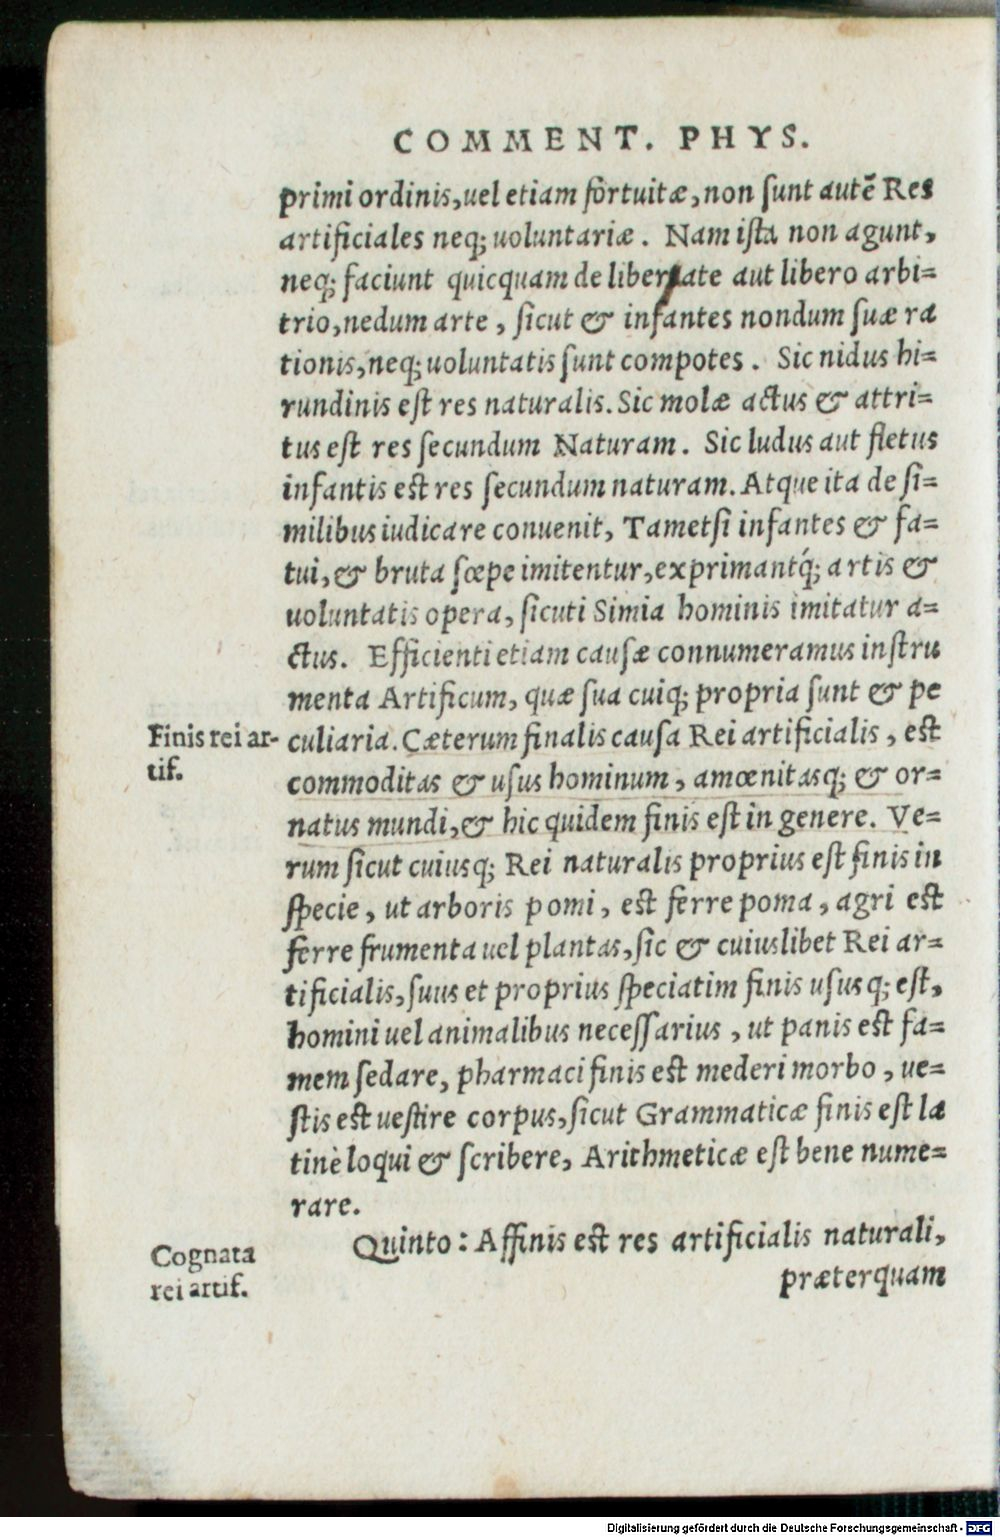 COMMENT. PHYS.
primi ordinis, uel etiam fortuitæ, non sunt autẽ Res
artificiales neq; uoluntariæ. Nam ista non agunt,
neq; faciunt quicquam de libertate aut libero arbi=
trio, nedum arte, sicut & infantes nondum suæ ra
tionis, neq; uoluntatis sunt compotes. Sic nidus hi=
rundinis est res naturalis. Sic molæ actus & attri=
tus est res secundum Naturam. Sic ludus aut fletus
infantis est res secundum naturam. Atque ita de si=
milibus iudicare conuenit, Tametsi infantes & fa=
tui, & bruta sæpe imitentur, exprimantq́; artis &
uoluntatis opera, sicuti Simia hominis imitatur a=
ctus. Efficienti etiam causæ connumeramus instru
menta Artificum, quæ sua cuiq; propria sunt & pe
Finis rei ar-
tif.
culiaria. Cæterum finalis causa Rei artificialis, est
commoditas & usus hominum, amœnitasq; & or=
natus mundi, & hic quidem finis est in genere. Ve=
rum sicut cuiusq; Rei naturalis proprius est finis in
specie, ut arboris pomi, est ferre poma, agri est
ferre frumenta uel plantas, sic & cuiuslibet Rei ar=
tificialis, suus et proprius speciatim finis ususq; est,
homini uel animalibus necessarius, ut panis est fa=
mem sedare, pharmaci finis est mederi morbo, ue=
stis est uestire corpus, sicut Grammaticæ finis est la
tinè loqui & scribere, Arithmeticæ est bene nume=
rare.
Cognata
rei artif.
Quinto: Affinis est res artificialis naturali,
præterquam
Digitalisierung gefördert durch die Deutsche Forschungsgemeinschaft - DFG